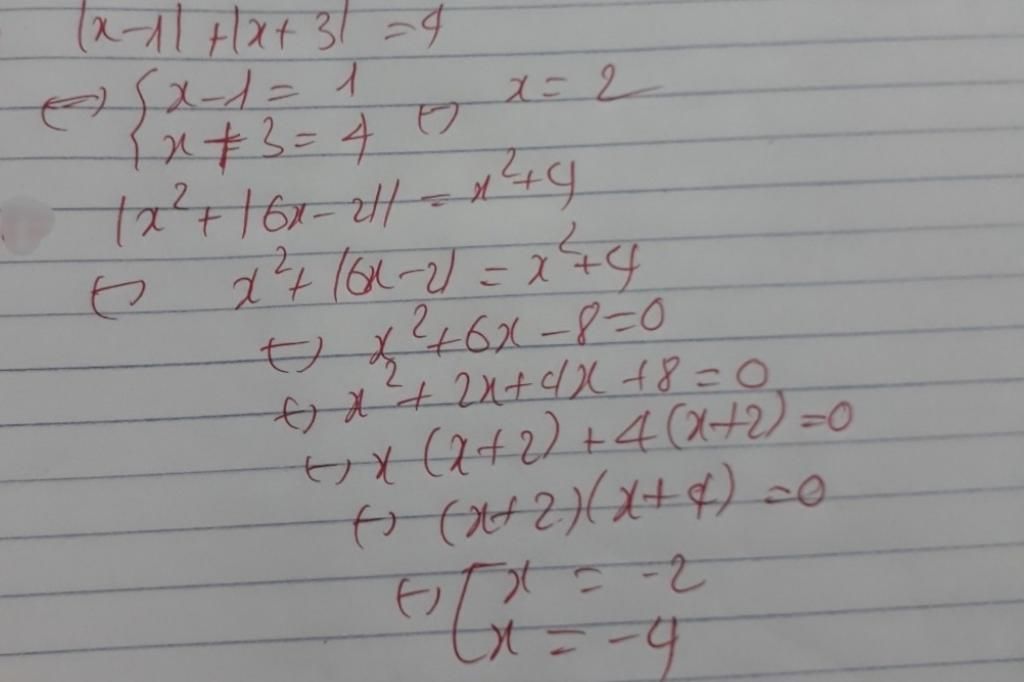 |x-1| + |x+3| = 4
⇔ { x-1 = 1 ⇔ x = 2
x + 3 = 4
|x² + |6x-2|| = x² + 4
⇔ x² + |6x-2| = x² + 4
⇔ x² + 6x - 8 = 0
⇔ x² + 2x + 4x + 8 = 0
⇔ x (x+2) + 4 (x+2) = 0
⇔ (x+2)(x+4) = 0
⇔ [ x = -2
x = -4